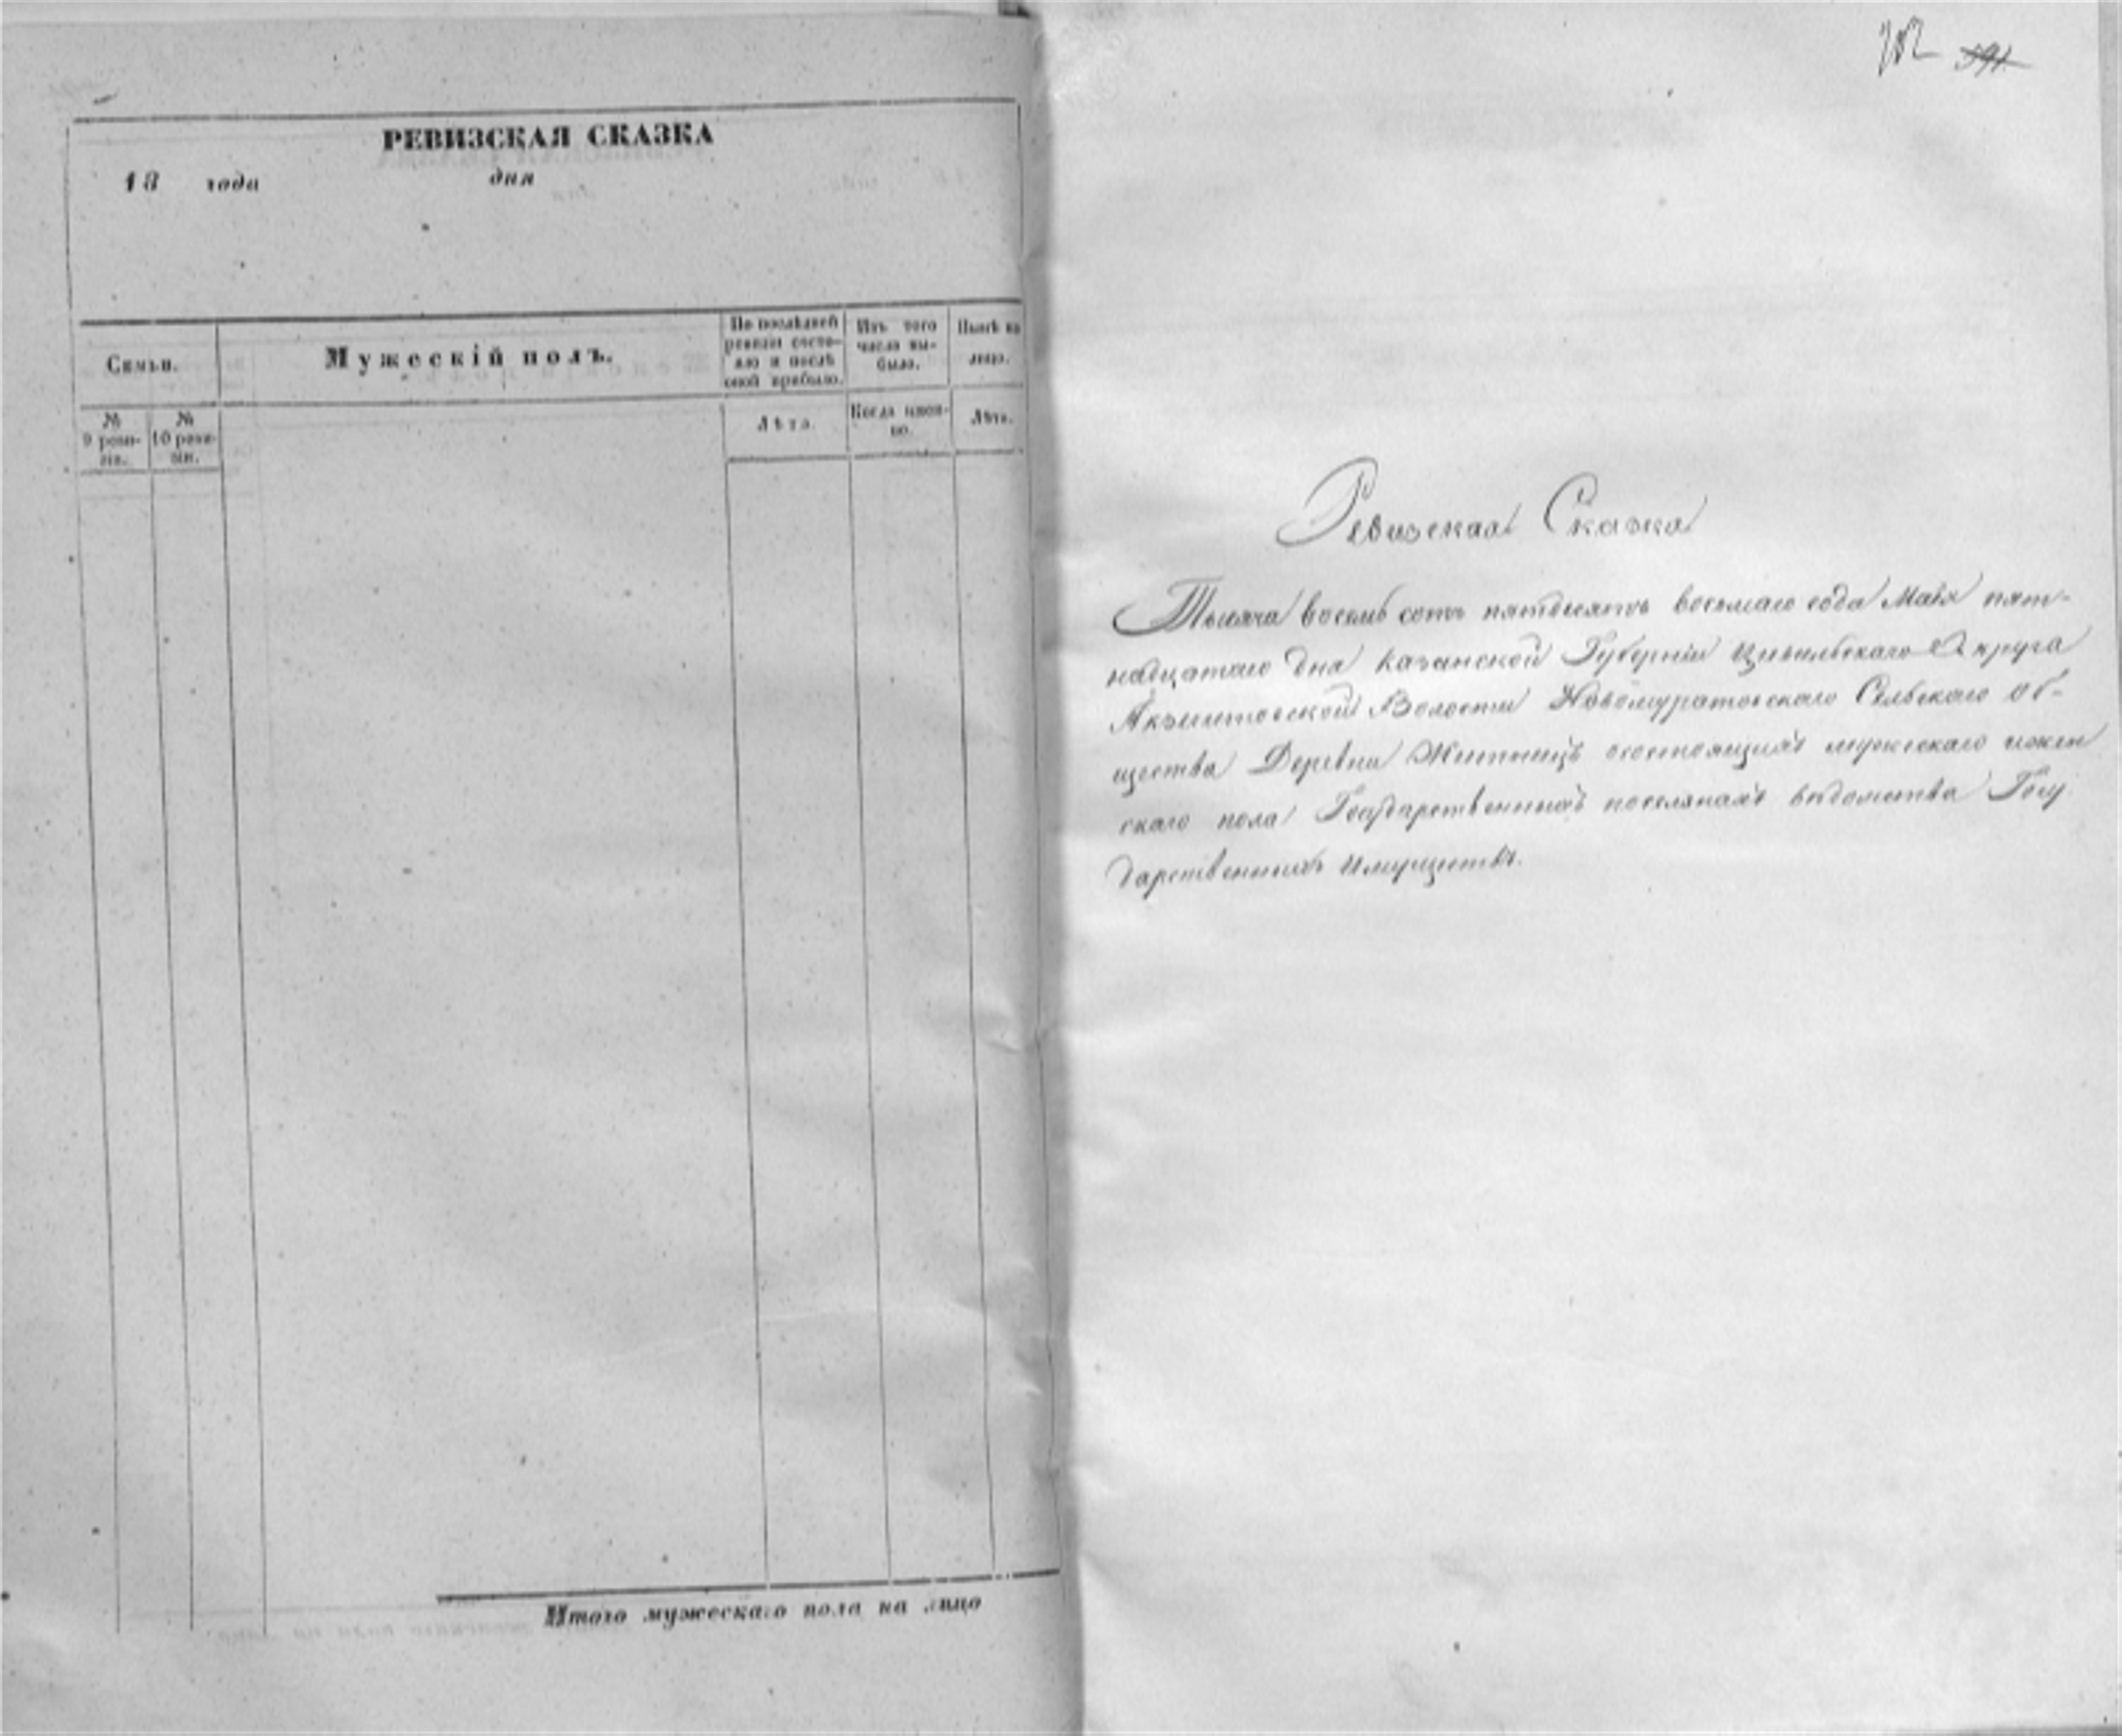 РЕВИЗСКАЯ СКАЗКА
18 года дня
Семьи.
Мужескій полъ.
По послѣдней ревизіи состояло и послѣ оной прибыло.
Изъ того числа выбыло.
Нынѣ на лицо.
№ 9 ревизіи.
№ 10 ревизіи.
Лѣта.
Когда имянно.
Лѣта.
Итого мужескаго пола на лицо
391.
Ревизская Сказка
Тысяча восемь сотъ пятдесятъ восьмаго года Маія пят-
надцатаго дня Казанской Губерніи Цивильскаго Округа
Акзегитовской Волости Новомуратовскаго Сельскаго об-
щества Деревни Житницъ о состоящихъ мужескаго и жен
скаго пола Государственныхъ поселянахъ вѣдомства Госу
дарственныхъ Имуществъ.